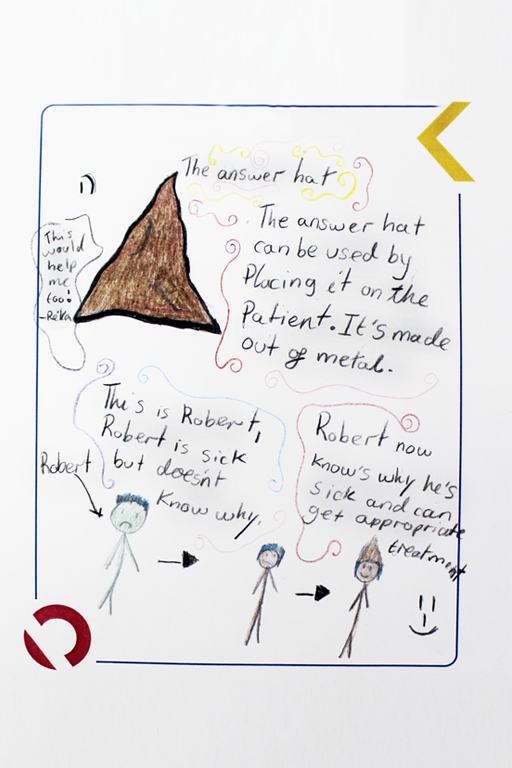 The answer hat
This
would
help
me
too!
-Reka
The answer hat
can be used by
Placing it on the
Patient. It's made
out of metal.
This is Robert,
Robert is sick
but doesn't
know why.
Robert
Robert now
know's why he's
sick and can
get appropriate
treatment